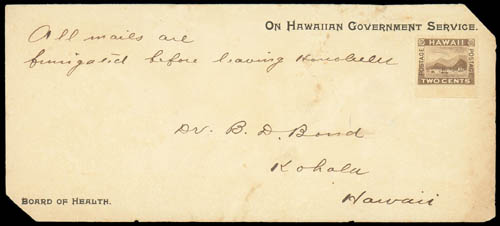 On Hawaiian Government Service.
All mails are
fumigated before leaving Honolulu
POSTAGE HAWAII POSTAGE
TWO CENTS
Dr. B. D. Bond
Kohala
Hawaii
Board of Health.